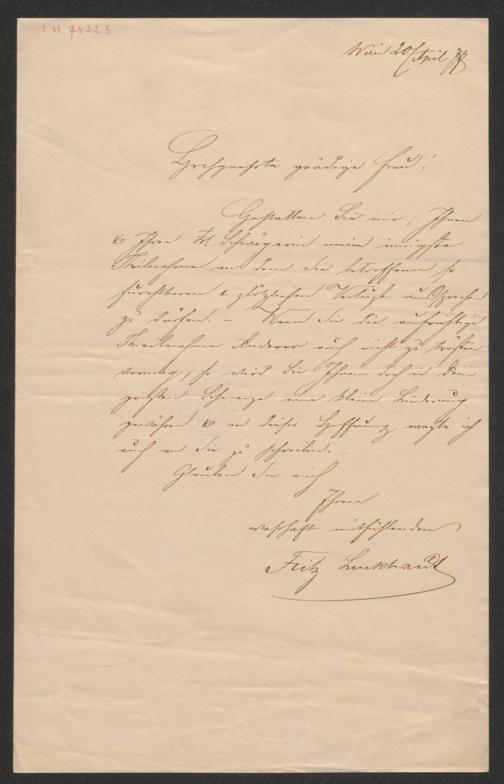 I.N. 74223
Wien 20/April 77
Hochgeehrte gnädige Frau!
Gestatten Sie mir, Ihnen
& Ihrer Frl Schwägerin meine innigste
Theilnahme an dem Sie betroffenen so
furchtbaren & plötzlichen Verluste aussprechen
zu dürfen. – Wenn Sie die aufrichtige
Theilnahme Anderer auch nicht zu trösten
vermag, so wird Sie Ihnen doch in dem
großen Schmerze eine kleine Linderung
gewähren & in dieser Hoffnung wagte ich
auch an Sie zu schreiben.
Glauben Sie mich
Ihren
wahrhaft mitfühlenden
Fritz Luckhardt